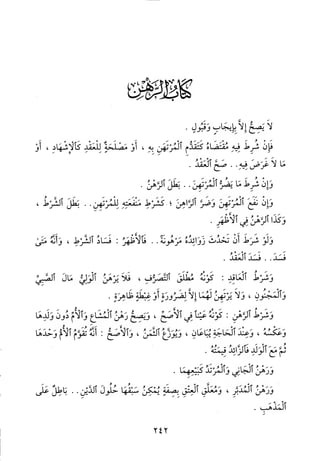 كتاب الرهن
لا يصح إلا بإيجاب وقبول .
فإن شرط فيه مقتضاه كتقدم المرتهن به ، أو مصلحة للعقد كالإشهاد ، أو
ما لا غرض فيه . . صح العقد .
وإن شرط ما يضر المرتهن . . بطل الرهن .
وإن نفع المرتهن وضر الراهن ؛ كشرط منفعته للمرتهن . . بطل الشرط ،
وكذا الرهن في الأظهر .
ولو شرط أن تحدث زوائده مرهونة . . فالأظهر : فساد الشرط ، وأنه متى
فسد . . فسد العقد .
وشرط العاقد : كونه مطلق التصرف ، فلا يرهن الولي مال الصبي
والمجنون ، ولا يرتهن لهما إلا لضرورة أو غبطة ظاهرة .
وشرط الرهن : كونه عينا في الأصح ، ويصح رهن المشاع والأم دون ولدها
وعكسه ، وعند الحاجة يباعان ، ويوزع الثمن ، والأصح : أنه تقوم الأم وحدها
ثم مع الولد فالزائد قيمته .
ورهن الجاني والمرتد كبيعهما .
ورهن المدبر ، ومعلق العتق بصفة يمكن سبقها حلول الدين . . باطل على
المذهب .
٢٤٢